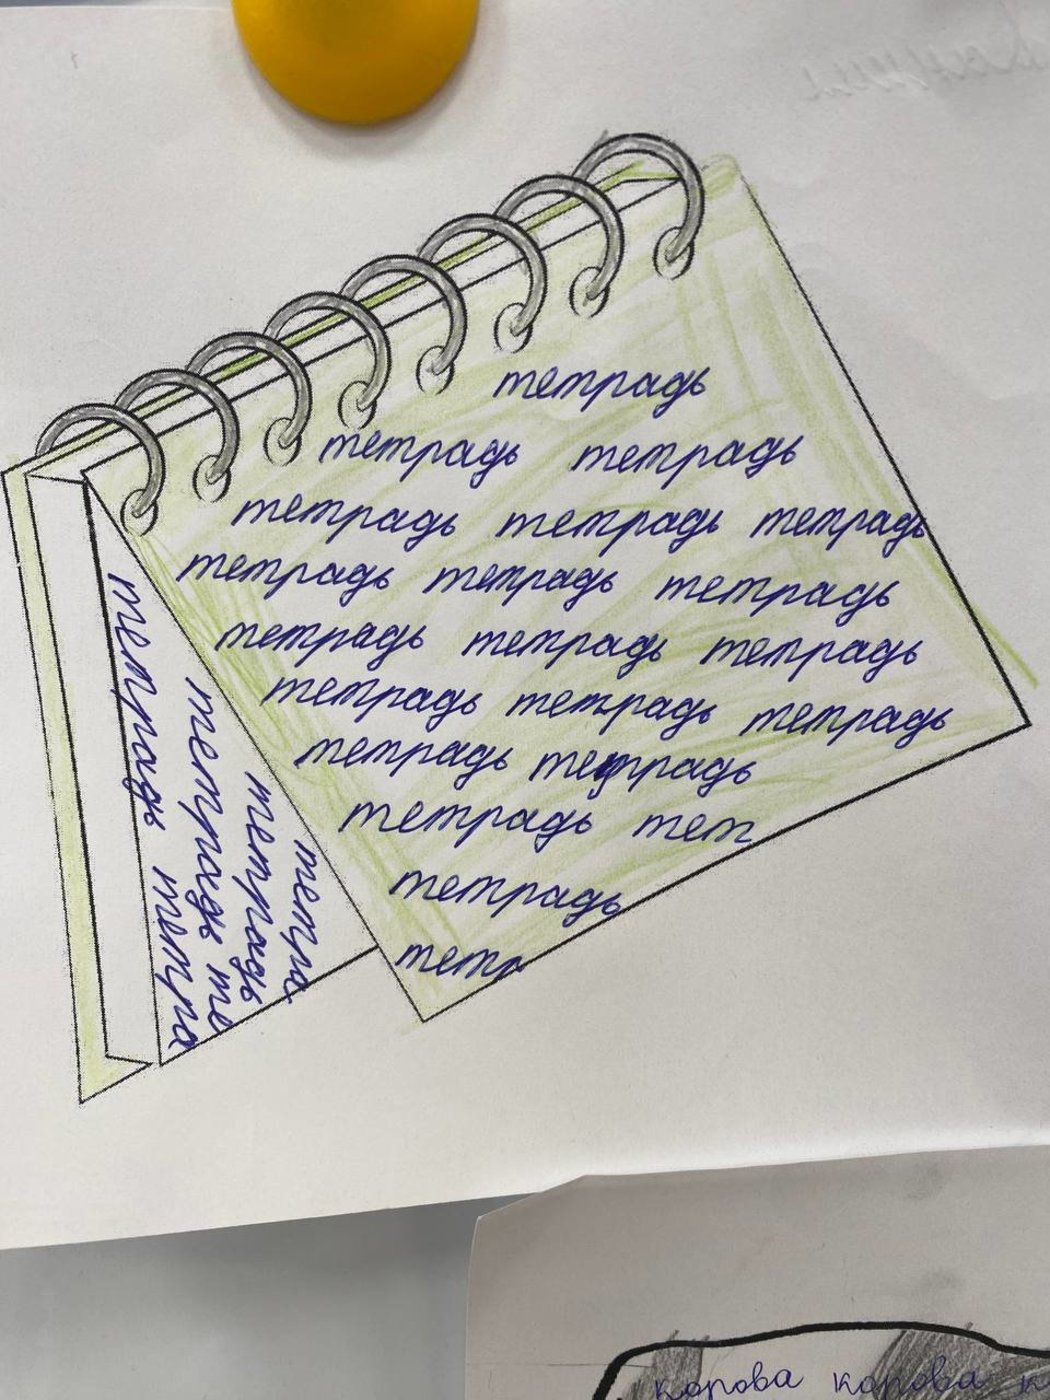 тетрадь
тетрадь тетрадь
тетрадь тетрадь тетрадь
тетрадь тетрадь тетрадь
тетрадь тетрадь тетрадь
тетрадь тетрадь тетрадь
тетрадь тетрадь
тетрадь тет
тетрадь
тетр
тетрадь тетра
тетрадь те
тетрадь
тетра
корова корова к